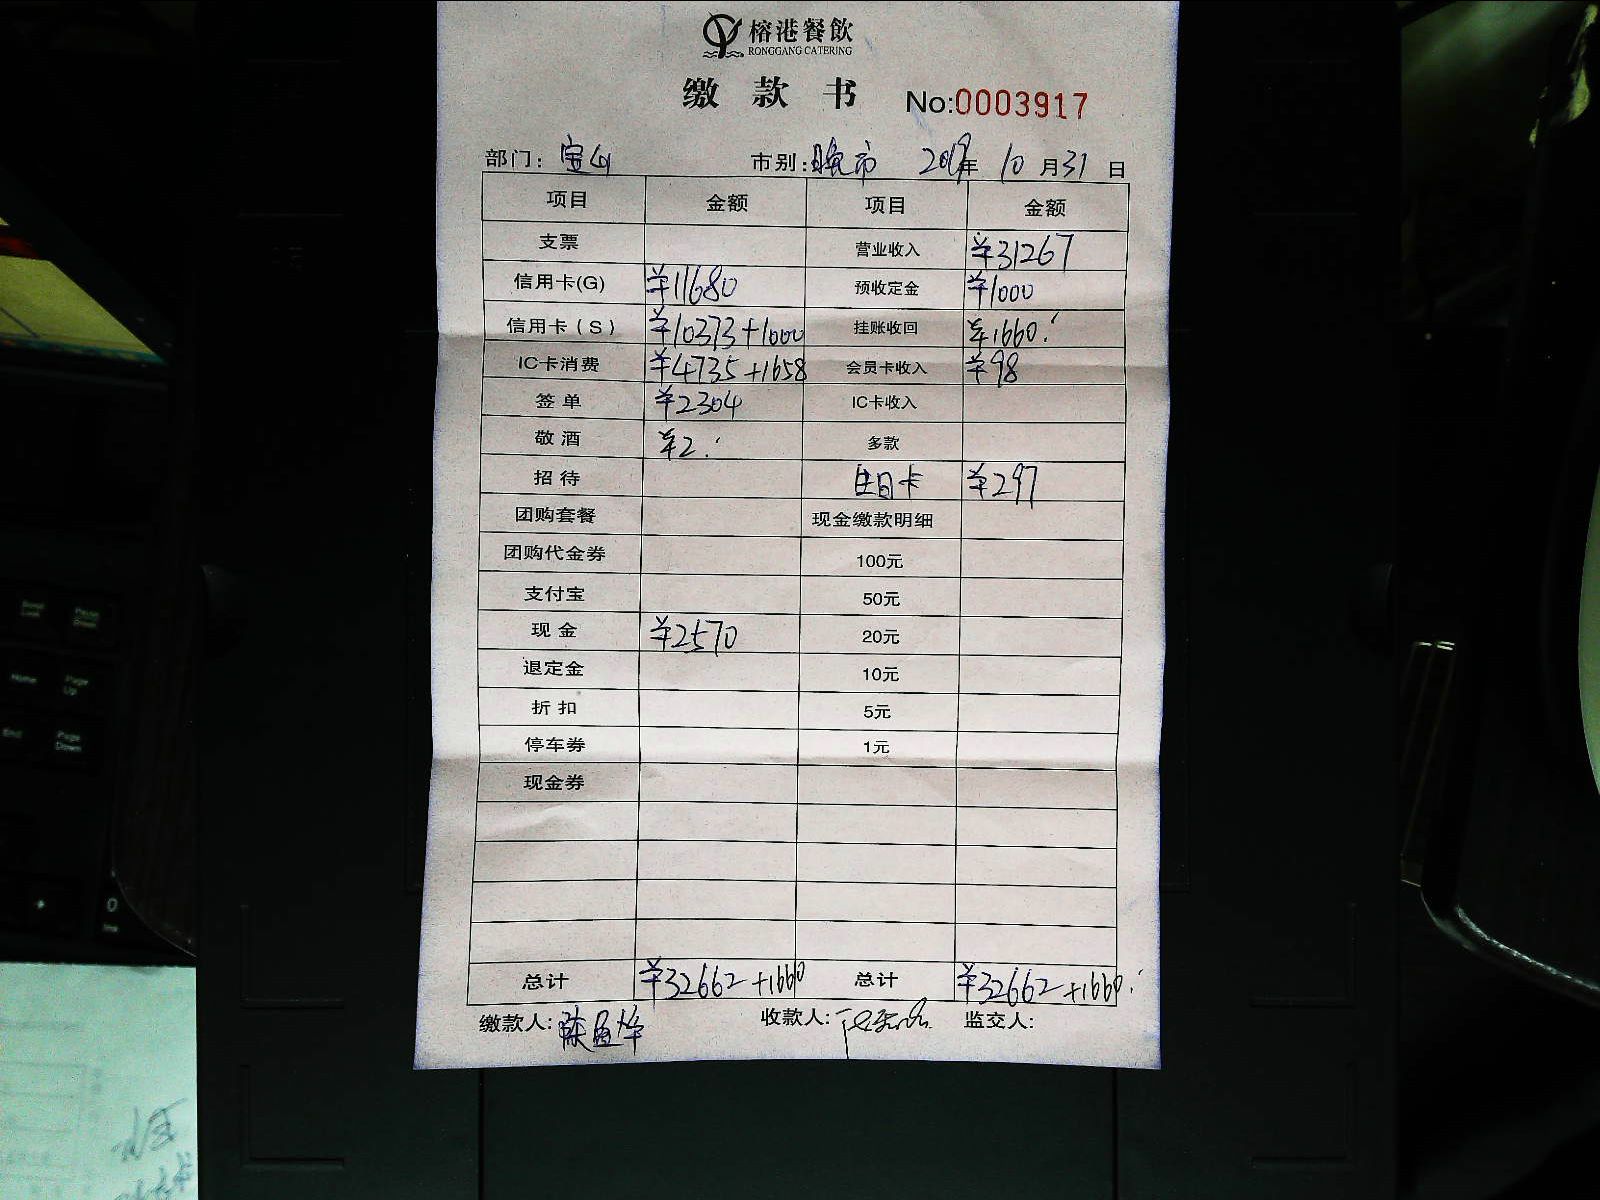 榕港餐飲
RONGGANG CATERING
缴款书 No:0003917
部门：宝山 市别：晚市 2019年 10月31日
项目 金额 项目 金额
支票 营业收入 ¥31267
信用卡(G) ¥11680 预收定金 ¥1000
信用卡(S) ¥10373+1000 挂账收回 ¥1660.
IC卡消费 ¥4735+1658 会员卡收入 ¥98
签单 ¥2304 IC卡收入
敬酒 ¥2. 多款
招待 生日卡 ¥297
团购套餐 现金缴款明细
团购代金券 100元
支付宝 50元
现金 ¥2570 20元
退定金 10元
折扣 5元
停车券 1元
现金券
总计 ¥32662+1660 总计 ¥32662+1660.
缴款人: 陈 收款人: 监交人:
Home
Page Up
End
Page Down
0